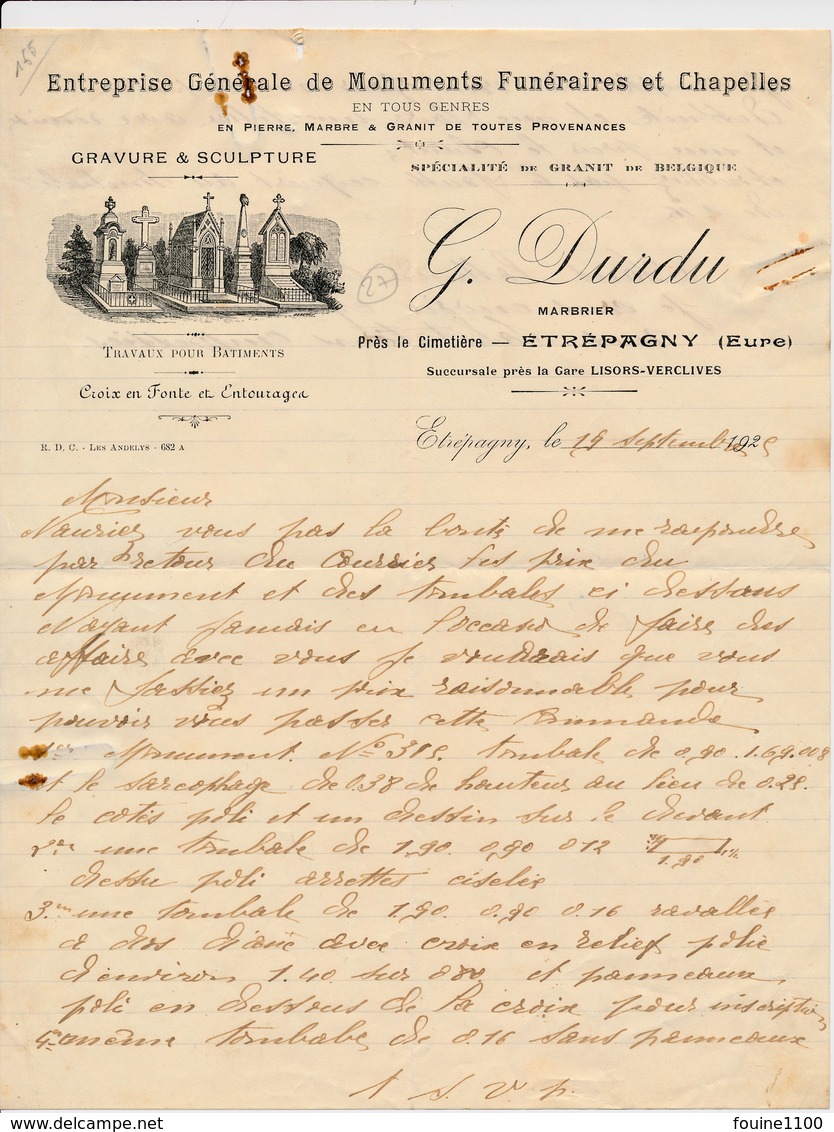 155
Entreprise Générale de Monuments Funéraires et Chapelles
EN TOUS GENRES
EN PIERRE, MARBRE & GRANIT DE TOUTES PROVENANCES
GRAVURE & SCULPTURE
SPÉCIALITÉ DE GRANIT DE BELGIQUE
27
G. Durdu
MARBRIER
Près le Cimetière — ÉTRÉPAGNY (Eure)
Succursale près la Gare LISORS-VERCLIVES
TRAVAUX POUR BATIMENTS
Croix en Fonte et Entourages
R. D. C. - LES ANDELYS - 682 A
Etrépagny, le 19 septembre 192
Monsieur
Nauriez vous pas la bonté de me raepondre
par retour du Courrier les prix du
Monument et des tombales ci dessous
Nayant jamais eu loccason de faire des
affaire avec vous je voudrais que vous
me fassiez un prix raisonnable pour
pouvoir vous passer cette Commande
1er Monument No 315 tombale de 0,90 1.69 008
et le sarcophage de 0.38 de hauteur au lieu de 0.25
le cotés poli et un dessin sur le devant
une tombale de 1,90 0,90 012
1.90
dessu poli arrettes ciselée
3. une tombale de 1.90 0.90 0.16 ravallée
a dos d'ane avec croix en relief polie
d'environ 1.40 sur 080 et panneaux
poli en dessous de la croix pour inscription
4 meme tombale de 0.16 sans panneaux
T S. V. p.
fouine1100